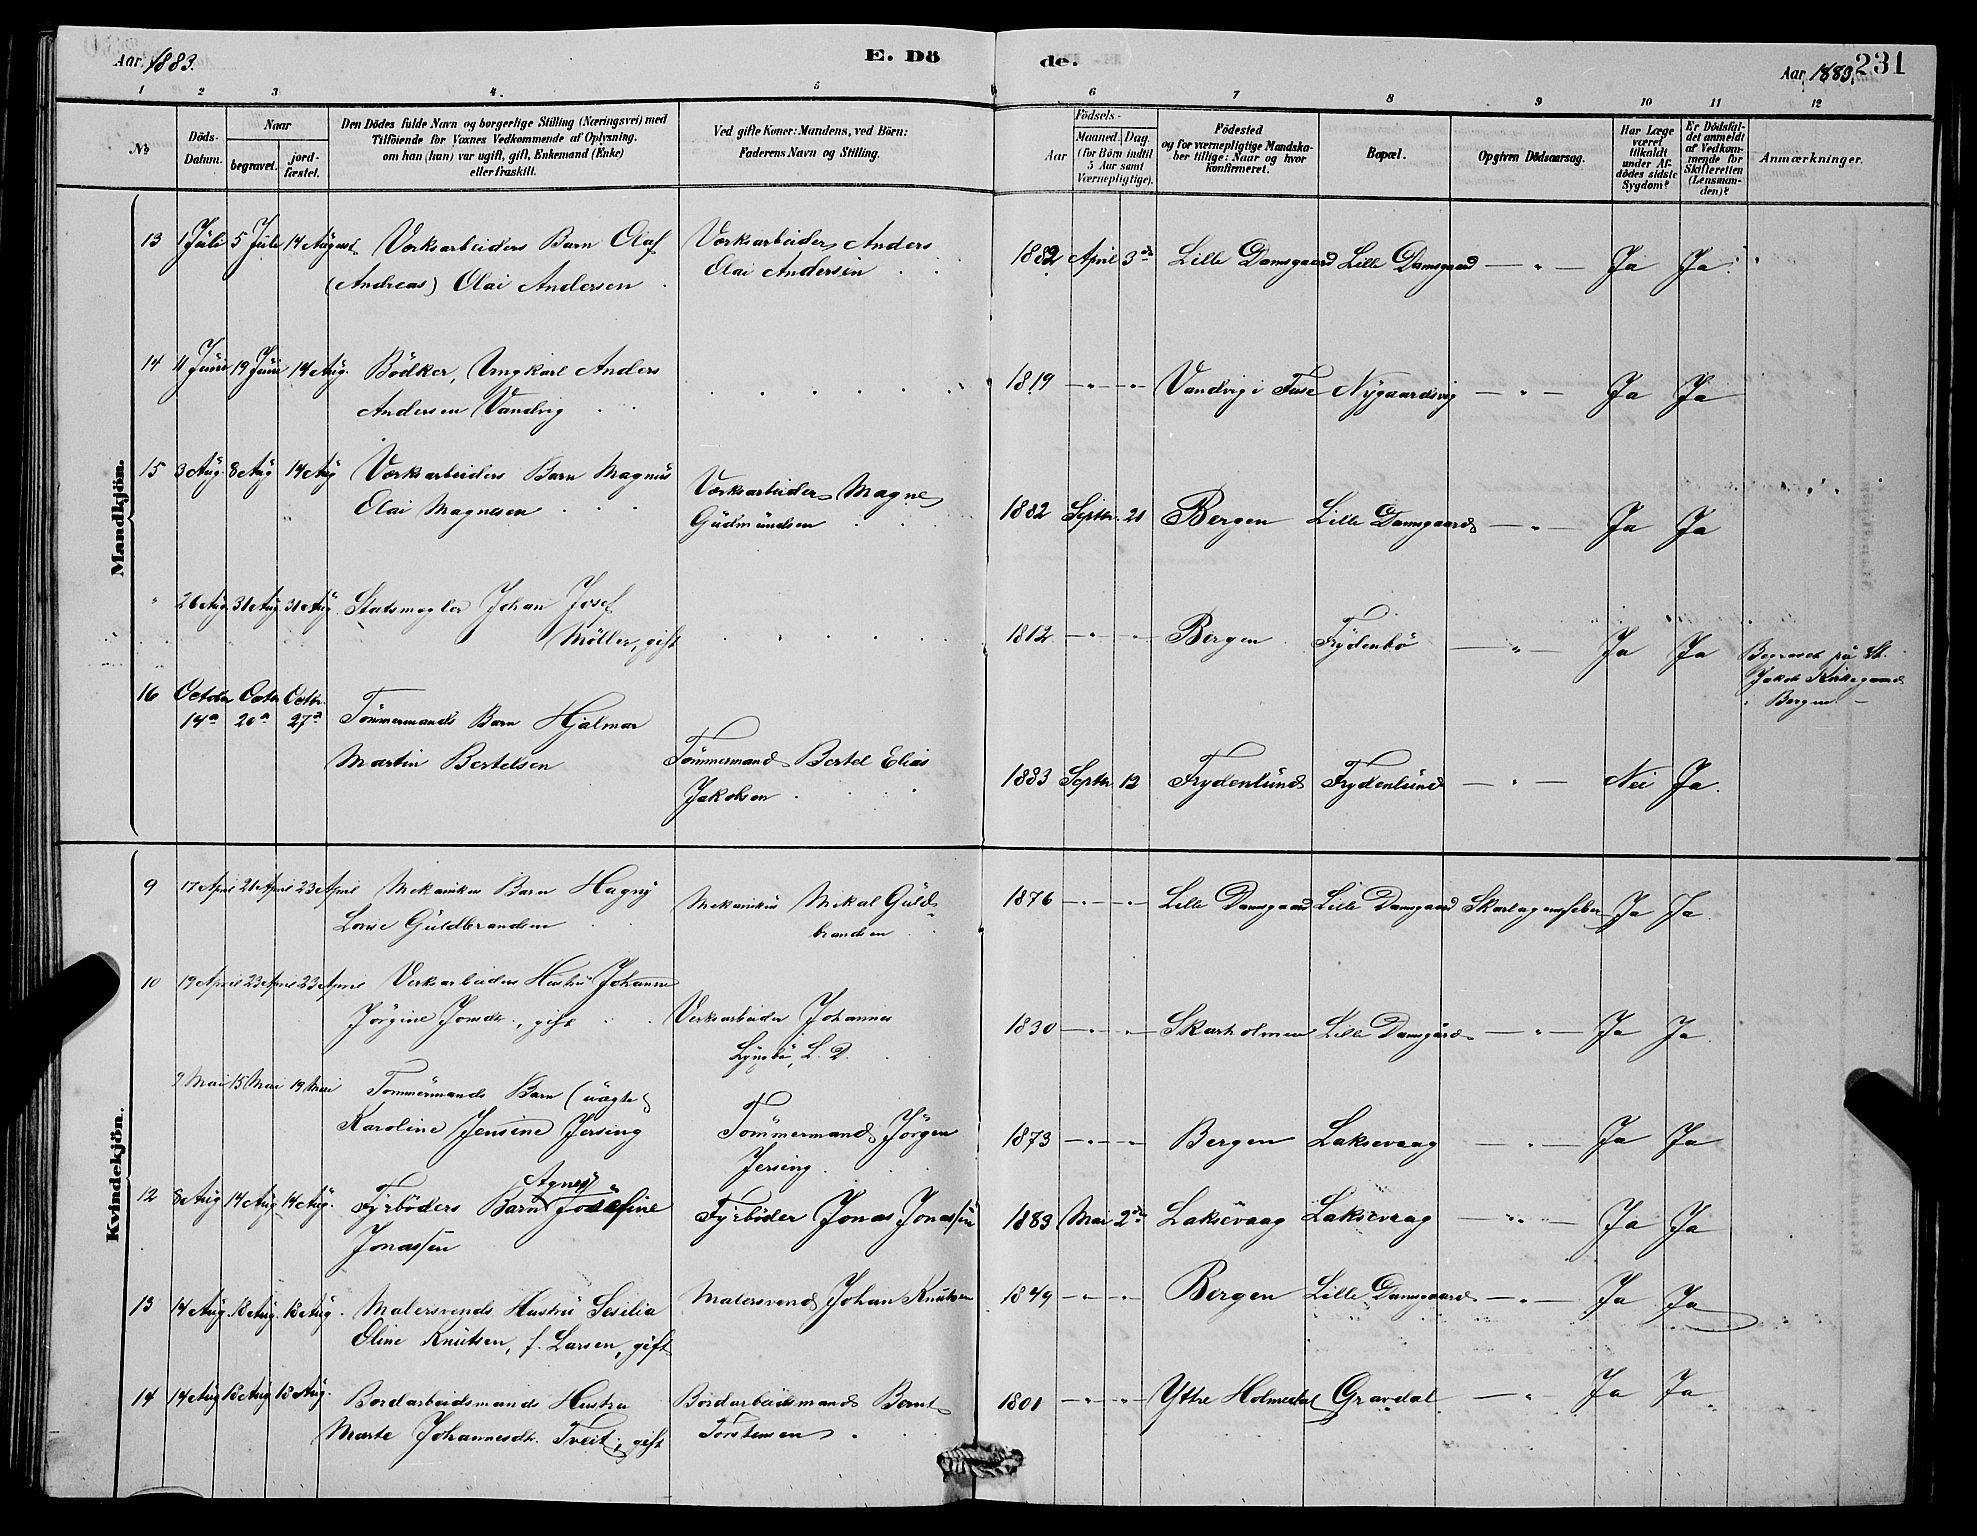 Aar 1883.
E. Dö
de.
Aar 1883.
231
1 2 3 4. 5 6 7 8 9 10 11 12
No
Döds-
Datum.
Naar
begravet.
jord-
fæstet.
Den Dödes fulde Navn og borgerlige Stilling (Næringsvei) med
Tilföiende for Voxnes Vedkommende af Oplysning,
om han (hun) var ugift, gift, Enkemand (Enke)
eller fraskilt.
Ved gifte Koner: Mandens, ved Börn:
Faderens Navn og Stilling.
Födsels-
Aar
Maaned. Dag.
(for Börn indtil
5 Aar samt
Værnepligtige).
Födested
og for værnepligtige Mandska-
ber tillige: Naar og hvor
konfirmeret.
Bopæl.
Opgiven Dödsaarsag.
Har Læge
været
tilkaldt
under Af-
dödes sidste
Sygdom?
Er Dödsfal-
det anmeldt
af Vedkom-
mende for
Skifteretten
(Lensman-
den)?
Anmærkninger.
Mandkjön.
13 1 Juli 5 Juli 14 August Værksarbeiders Barn Olaf
(Andreas) Olai Andersen
Værksarbeider Anders
Olai Andersen
1882 April 3de Lille Damsgaard Lille Damsgaard — " — Ja Ja
14 11 Juni 19 Juni 14 Aug. Bödker, Ungkarl Anders
Andersen Vandvig
1819 — " — " Vandvig i Fuse Nygaardsvig — " — Ja Ja
15 3 Aug 8 Aug 14 Aug Værksarbeiders Barn Magnus
Olai Magnesen
Værksarbeider Magne
Gudmundsen
1882 Septbr. 21 Bergen Lille Damsgaard — " — Ja Ja
" 26 Aug 31 Aug 31 Aug. Statsmegler Johan Josef
Möller, gift
1812 — " — " Bergen Frydenbö — " — Ja Ja
på St.
Jakob Kirkegaard
Bergen —
16 October Octbr Octbr.
14de 20de 27de Tömmermands Barn Hjalmar
Martin Bertelsen
Tömmermand Bertel Elias
Jakobsen
1883 Septbr. 12 Frydenlund Frydenlund — " — Nei Ja.
Kvindekjön.
9 17 April 21 April 23 April Mekanikus Barn Hagny
Lovise Guldbrandsen
Mekanikus Mikal Guld-
brandsen
1876 — " — " Lille Damsgaard Lille Damsgaard Skarlagensfeber Ja Ja.
10 19 April 23 April 23 April Verksarbeiders Hustru Johanne
Jörgine Jonsdtr., gift
Verksarbeider Johannes
Lyngbö, L. D.
1830 — " — " Skarholmen Lille Damsgård — " — Ja Ja.
9 Mai 15 Mai 19 Mai Tømmermands Barn (uægte)
Karoline Jensine Jersing
Tömmermand Jörgen
Jersing.
1873 — " — " Bergen Laksevaag — " — Ja Ja
12 8 Aug 14 Aug 14 Aug. Fyrböders Barn Agnes Josefine
Jonassen
Fyrböder Jonas Jonassen
1883 Mai 2den Laksevaag Laksevaag — " — Ja Ja
13 14 Aug 18 Aug. 18 Aug. Malersvends Hustru Sesilia
Oline Knutsen, f. Larsen, gift
Malersvend Johan Knutsen
1849 — " — " Bergen Lille Damsgaard — " — Ja Ja
14 14 Aug 18 Aug 18 Aug. Bordarbeidsmands Hustru
Marte Johannesdtr. Tveit, gift
Bordarbeidsmand Bernt
Torstensen
1801 — " — " Yttre Holmedal Gravdal — " Ja Ja